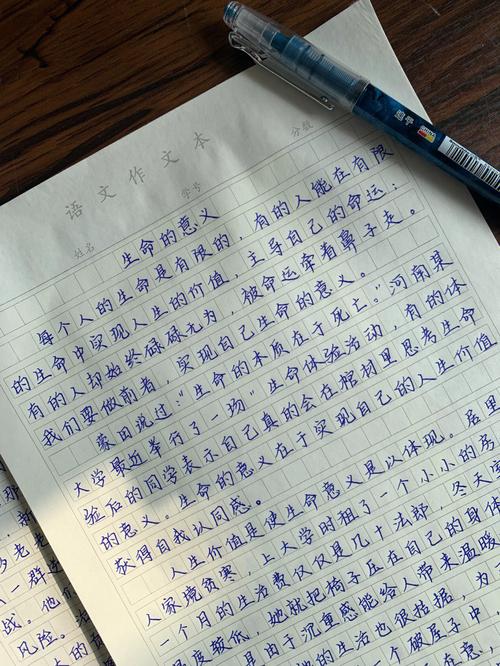 语文作文本
姓名 学号 分数
生命的意义
每个人的生命是有限的，有的人能在有限
的生命中实现人生的价值，主导自己的命运；
有的人却始终碌碌无为，被命运牵着鼻子走。
我们要做前者，实现自己生命的意义。
蒙田说过："生命的本质在于死亡。"河南某
大学最近举行了一场"生命体验活动，有的体
验后的同学表示自己真的会在棺材里思考生命
的意义。生命的意义在于实现自己的人生价值
获得自我认同感。
人生价值是使生命意义是以体现。居里
人家境贫寒，上大学时租了一个小小的房
一个月的生活费仅仅是几十法郎，冬天
温度较低，她就把椅子压在自己的身体
由于沉重感能给人带来温暖
的生活也很拮据，为
个破屋子中
那
老
一群
战。他们
风险。